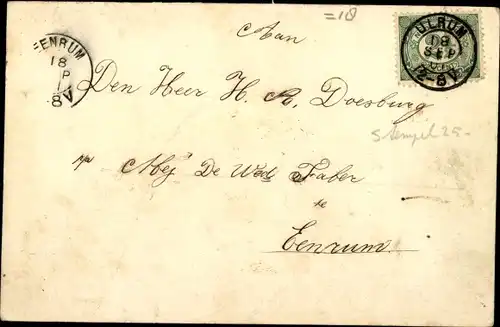 =18
EENRUM
18
8 V
ULRUM
18
SEP
2-8V
Aan
Den Heer H. A. Doesburg
Stempel 25-
p/a Mej De Wed Faber
te
Eenrum.